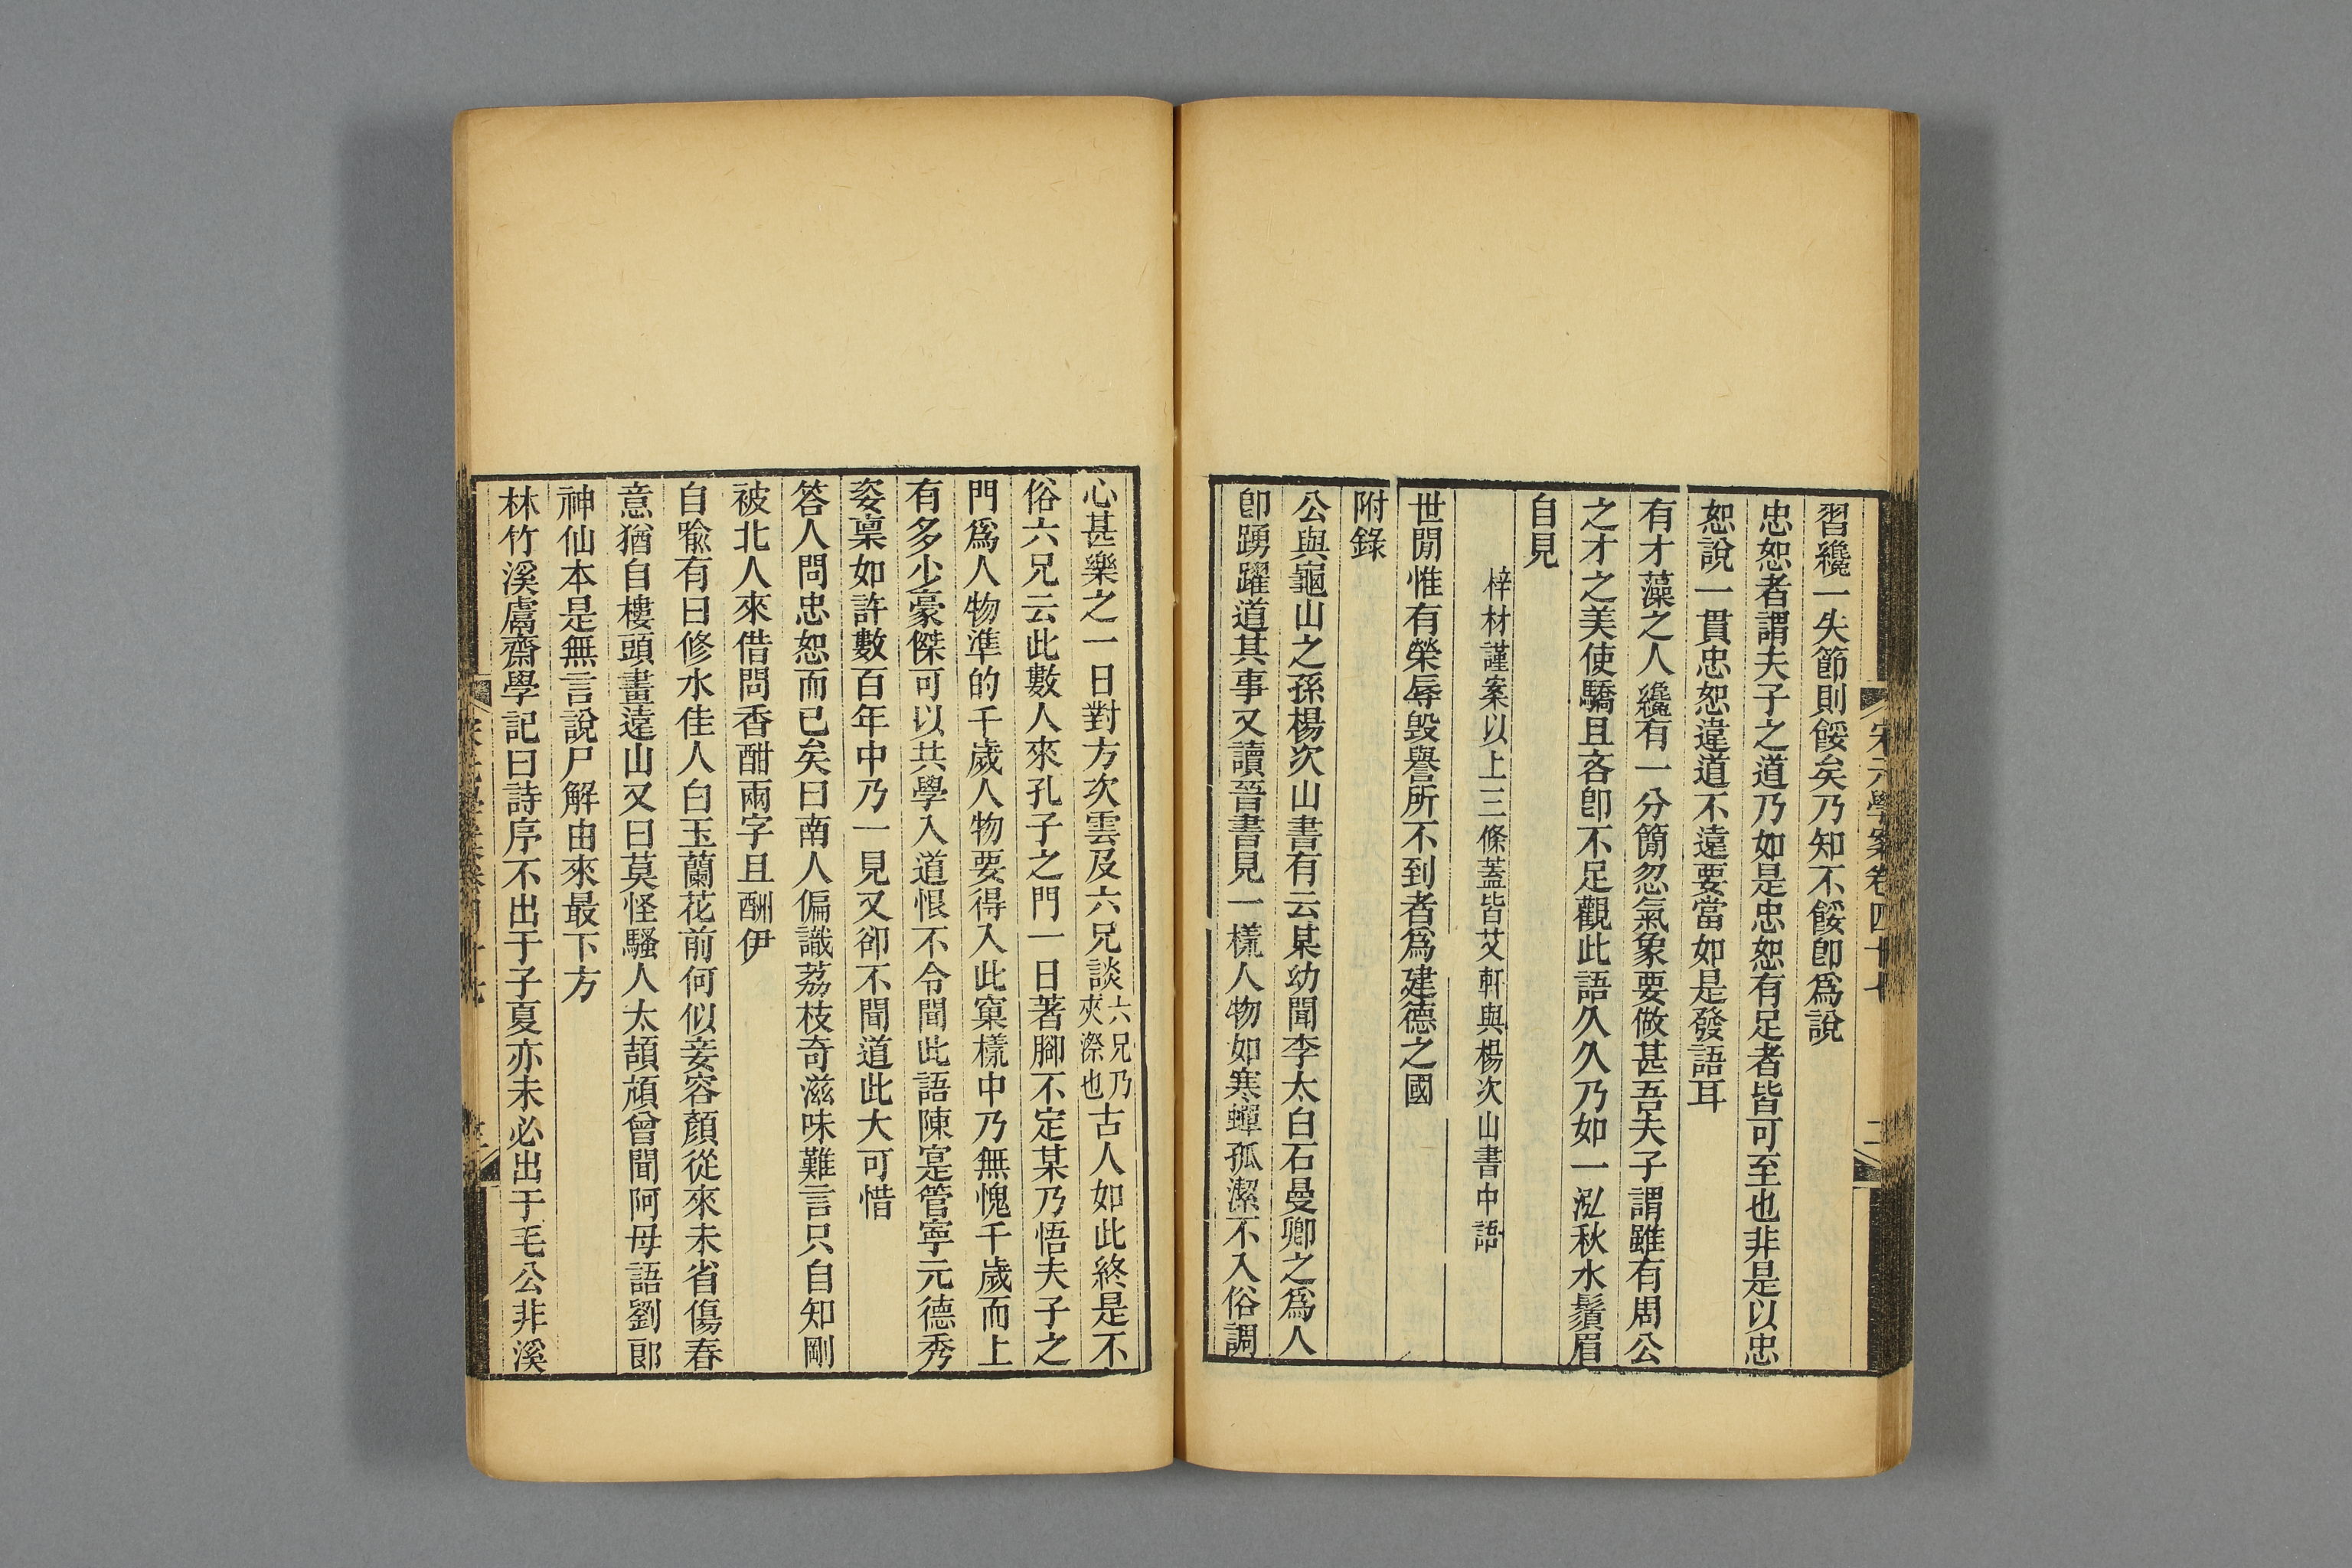 宋元學案卷四十七
二
習纔一失節則餒矣乃知不餒卽爲說
忠恕者謂夫子之道乃如是忠恕有足者皆可至也非是以忠
恕說一貫忠恕違道不遠要當如是發語耳
有才藻之人纔有一分簡忽氣象要做甚吾夫子謂雖有周公
之才之美使驕且吝卽不足觀此語久久乃如一泓秋水鬚眉
自見
梓材謹案以上三條蓋皆艾軒與楊次山書中語
世閒惟有榮辱毀譽所不到者爲建德之國
附錄
公與龜山之孫楊次山書有云某幼聞李太白石曼卿之爲人
卽踴躍道其事又讀晉書見一樣人物如寒蟬孤潔不入俗調
心甚樂之一日對方次雲及六兄談六兄乃夾漈也古人如此終是不
俗六兄云此數人來孔子之門一日著腳不定某乃悟夫子之
門爲人物準的千歲人物要得入此窠樣中乃無愧千歲而上
有多少豪傑可以共學入道恨不令聞此語陳寔管寧元德秀
姿稟如許數百年中乃一見又卻不聞道此大可惜
答人問忠恕而已矣曰南人偏識荔枝奇滋味難言只自知剛
被北人來借問香酣兩字且酬伊
自喩有曰修水佳人白玉蘭花前何似妾容顏從來未省傷春
意猶自樓頭畫遠山又曰莫怪騷人太頡頏曾聞阿母語劉郎
神仙本是無言說尸解由來最下方
林竹溪鬳齋學記曰詩序不出于子夏亦未必出于毛公非溪